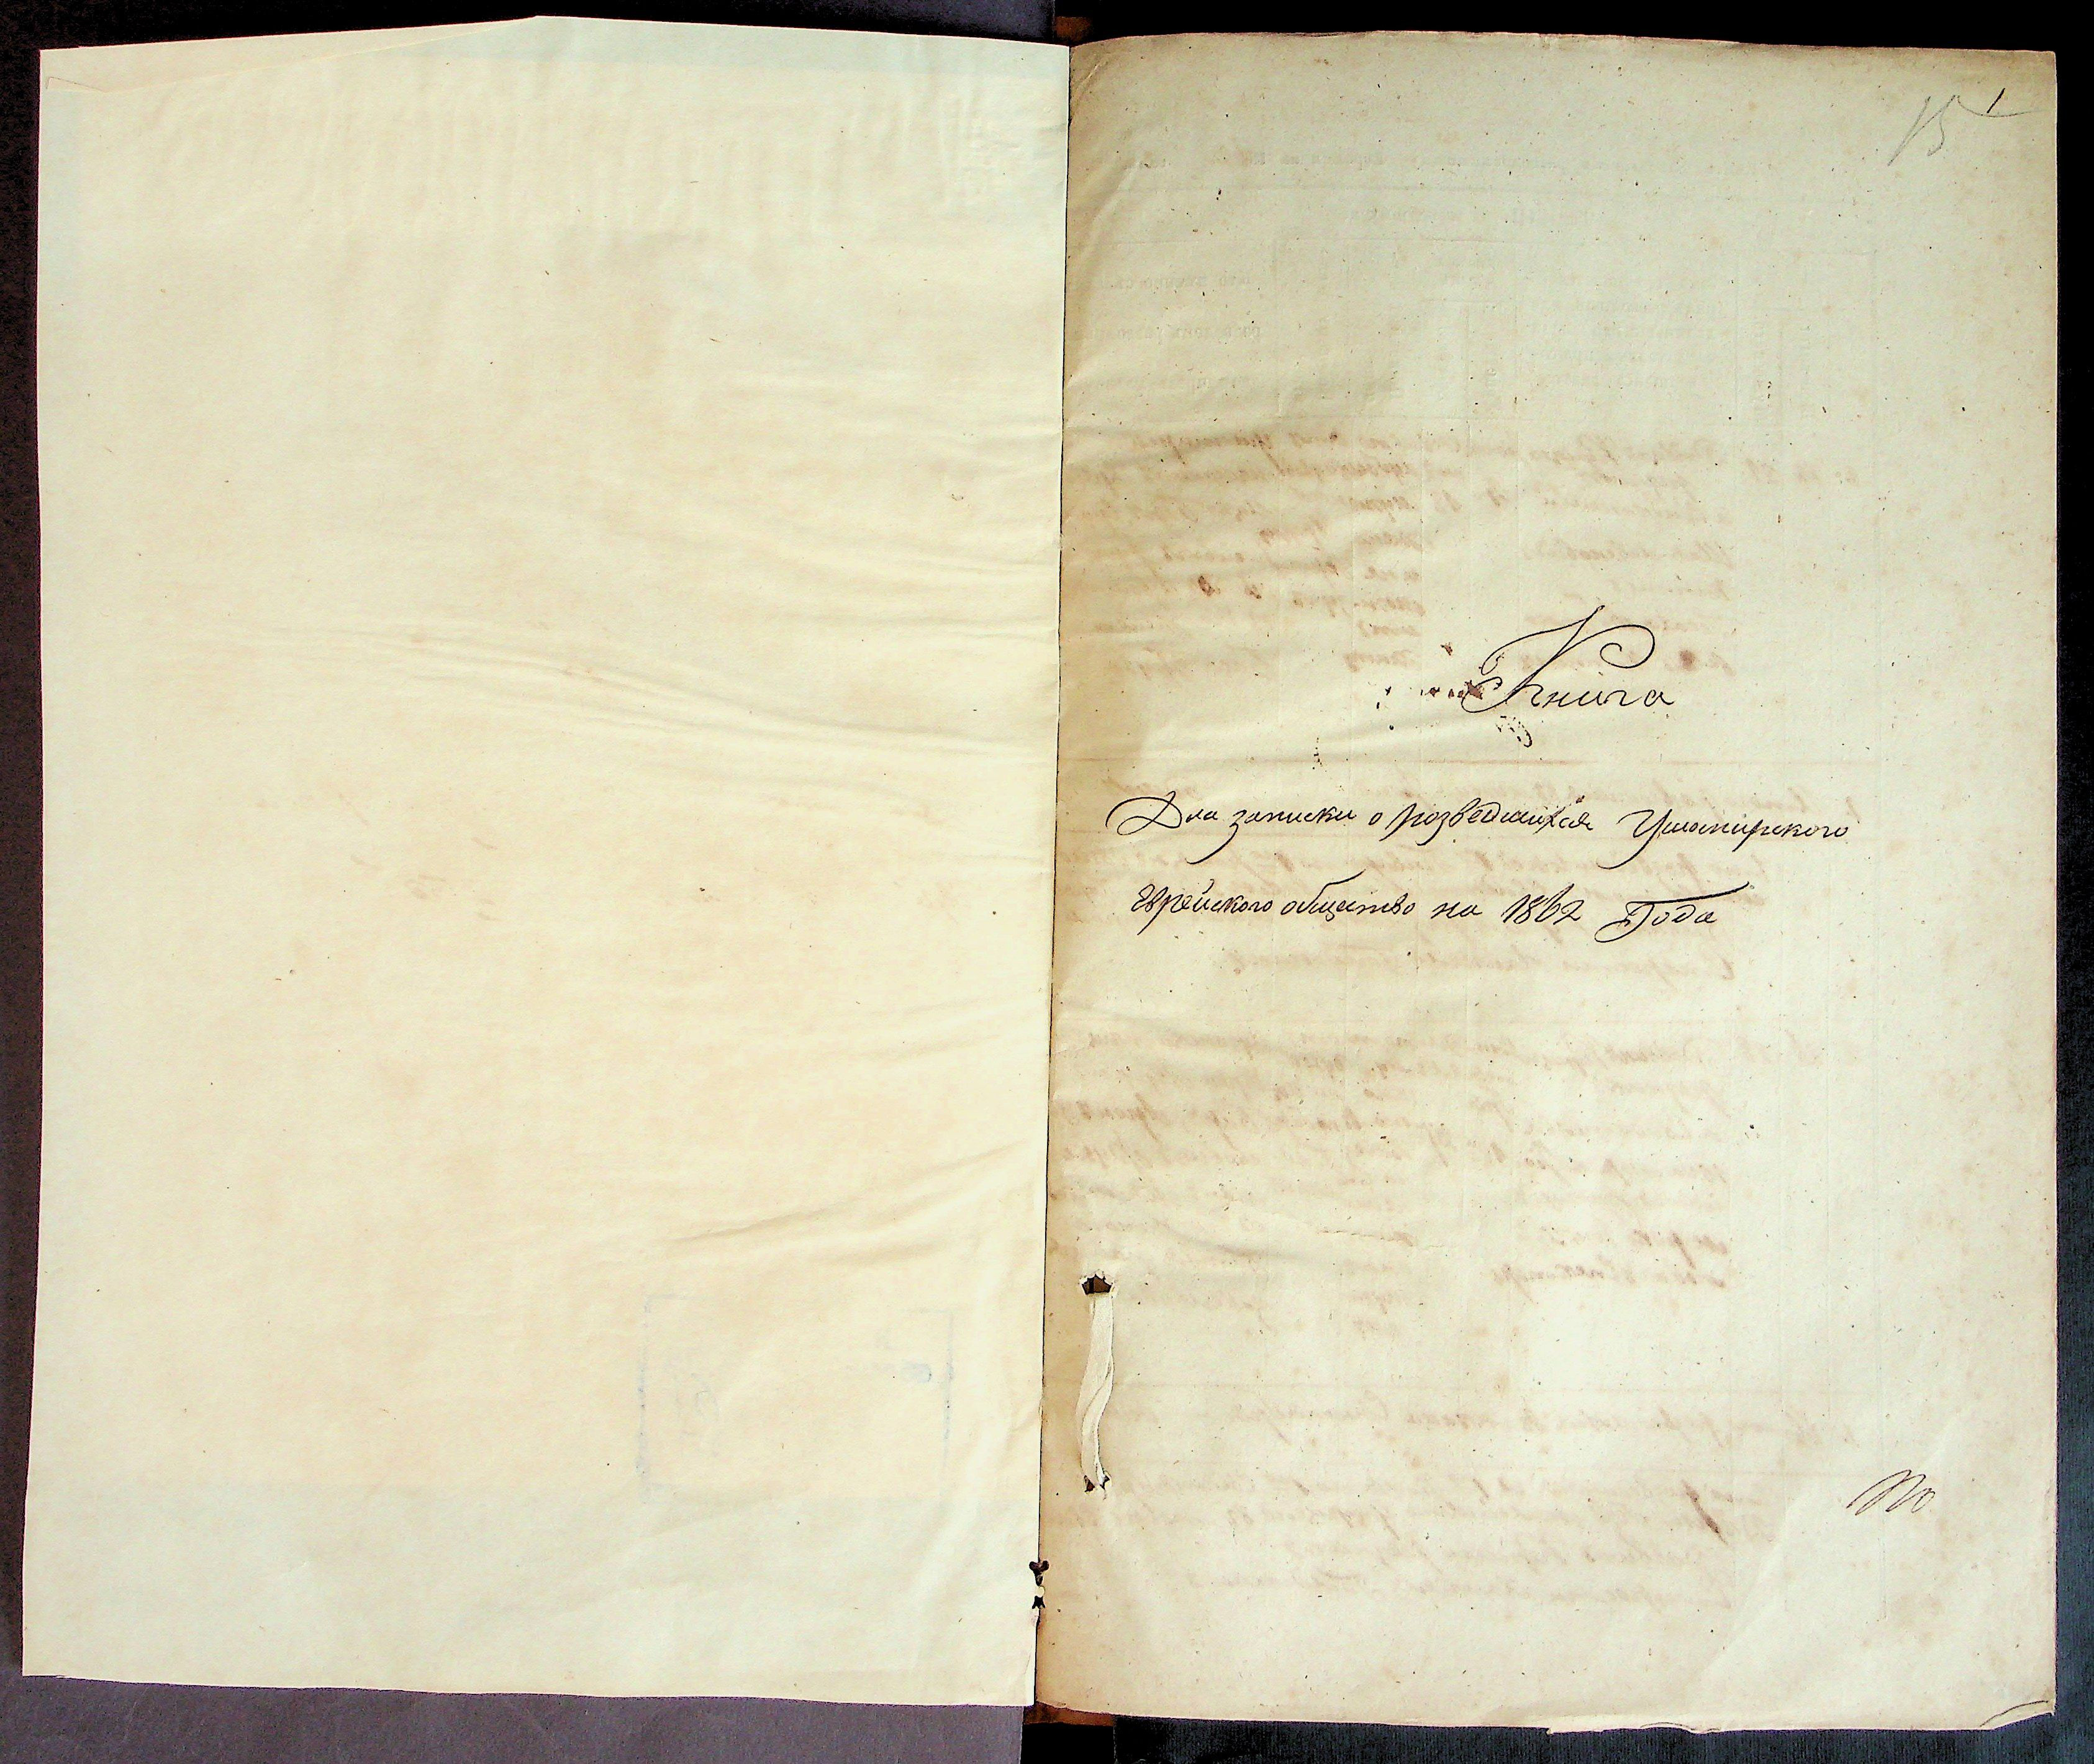 15 1
Книга
Для записки о розведшихся Уманирского
Еврейского общество на 1862 Года